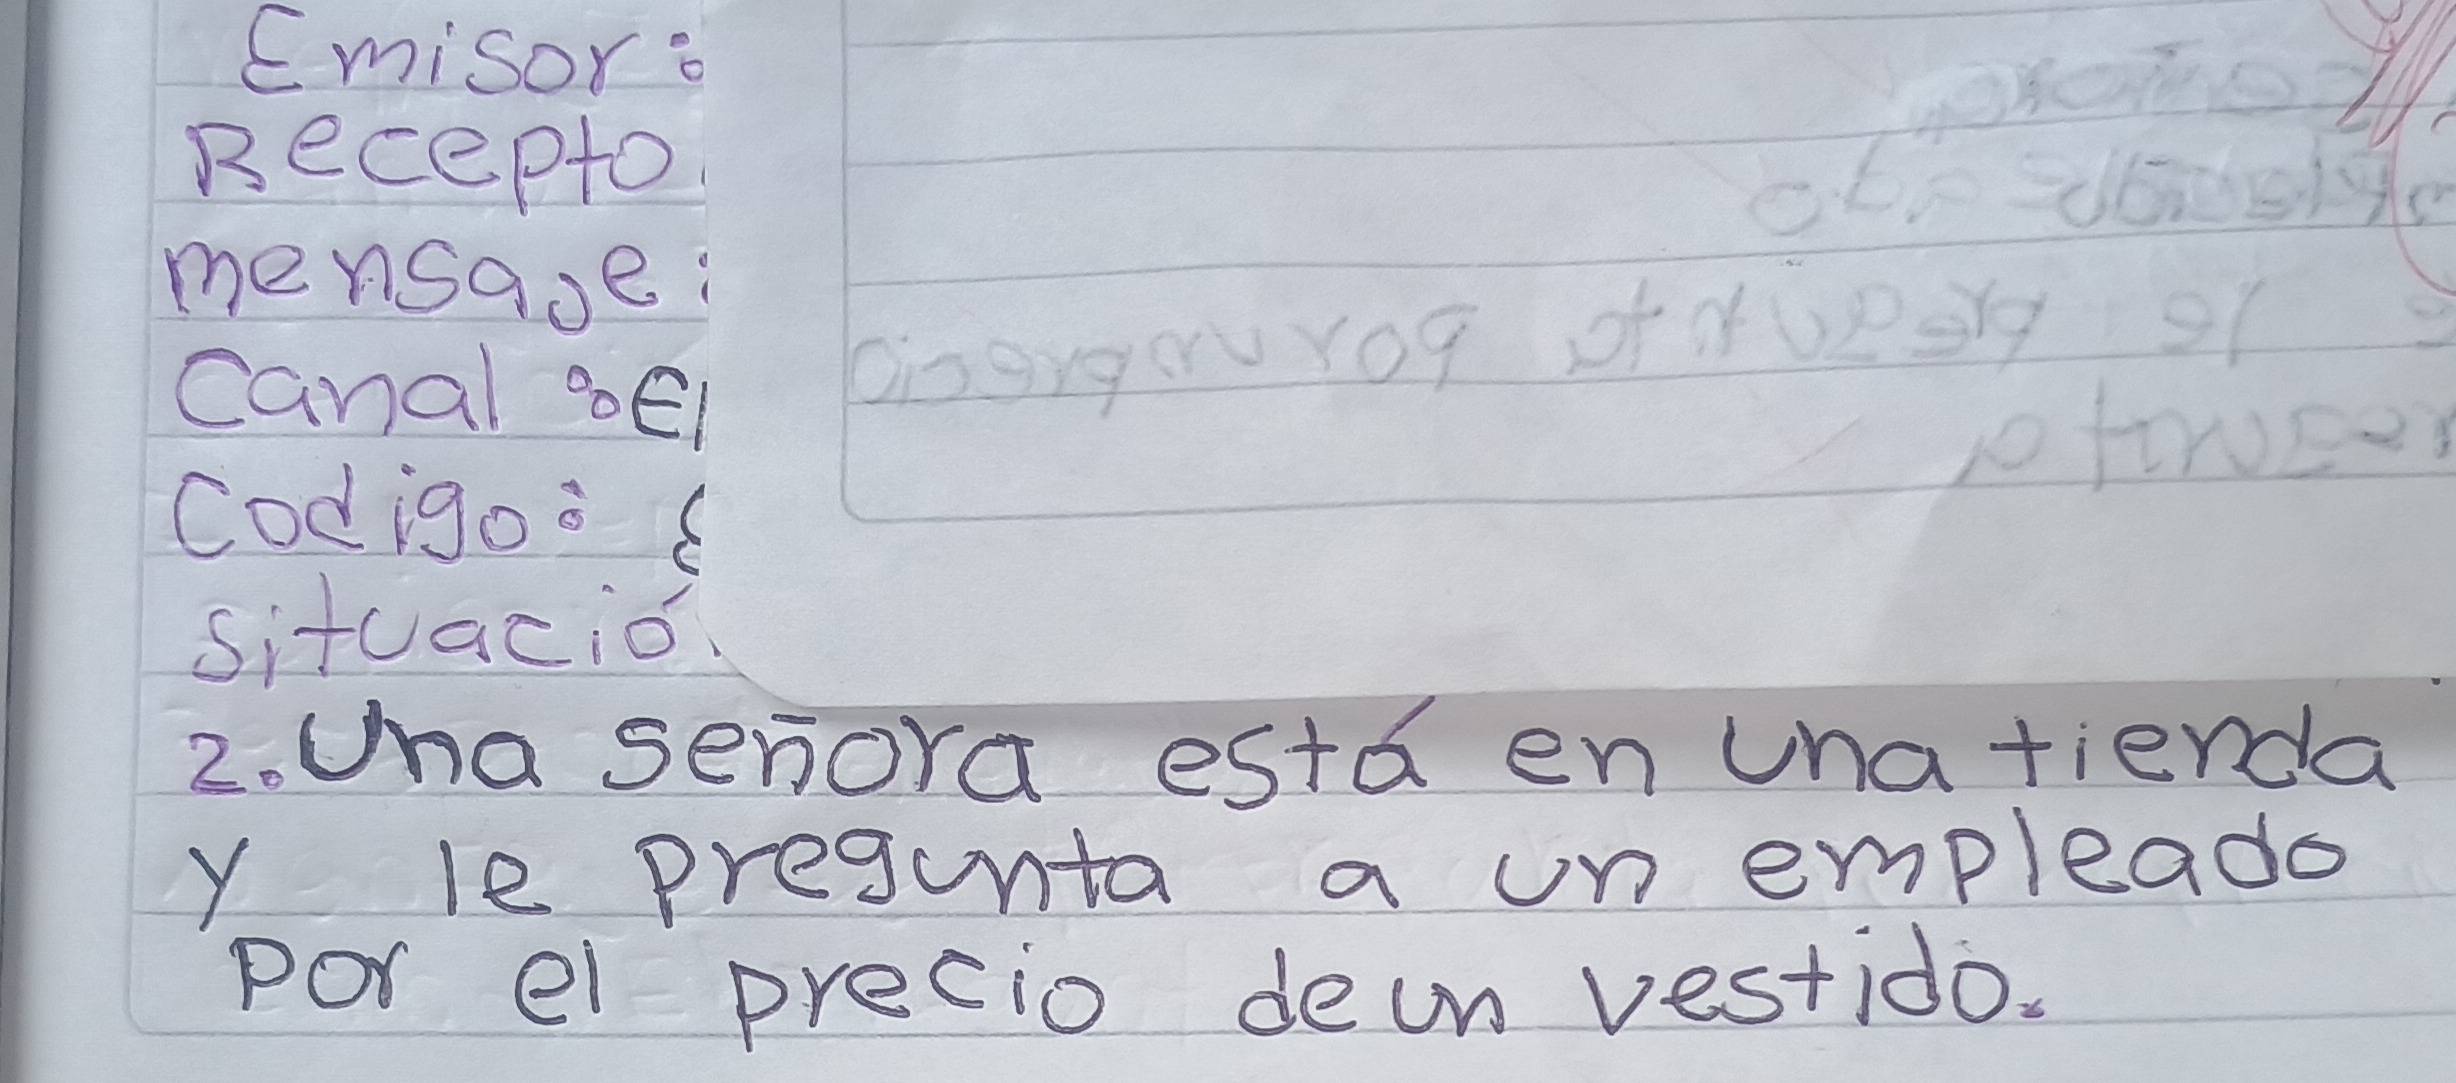 Emisor:
Recepto
mensaje:
Canal : El
Codigo:
situació
2. Una señora está en una tienda
y le pregunta a un empleado
por el precio de un vestido.